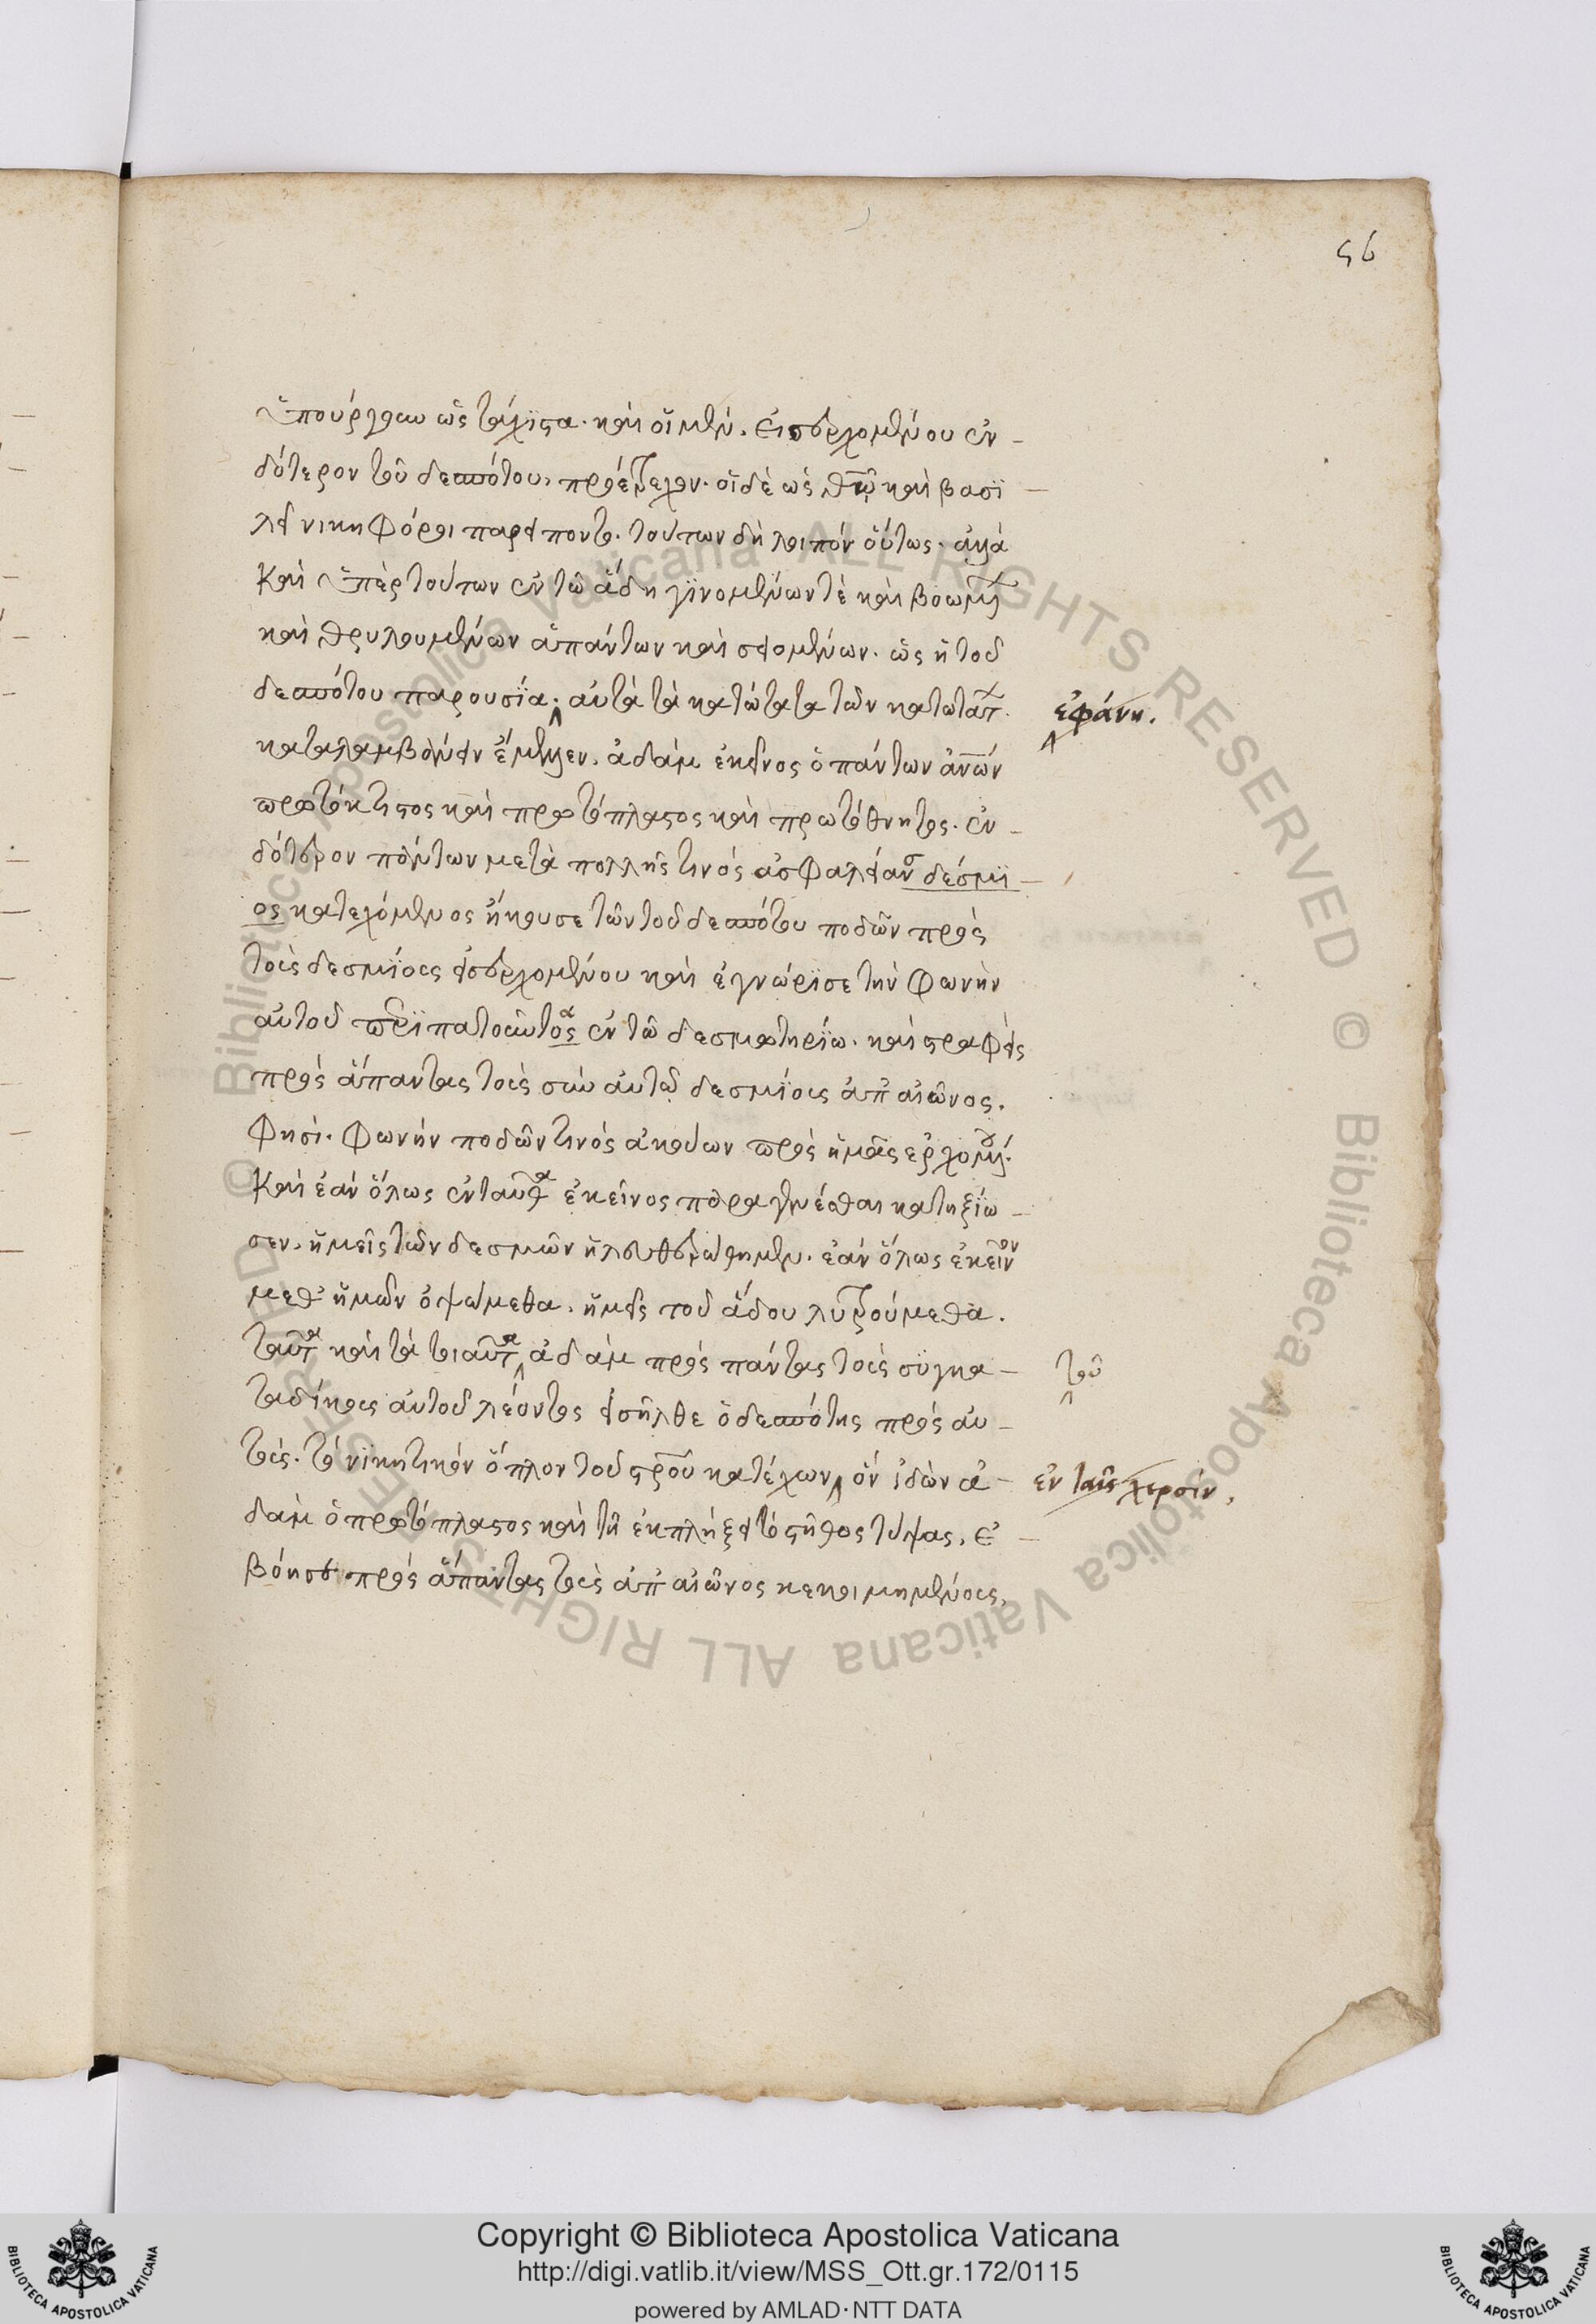 56
ὑπούργουν ὡς τάχιστα· καὶ οἱ μὲν, εἰσερχομένου ἐν-
δότερον τοῦ δεσπότου, προέτρεχον· οἱ δὲ ὡς θῶ καὶ βασι-
λεῖ νικηφόρῳ παρείποντο· τούτων δὴ λοιπὸν οὕτως·
καὶ ὑπὲρ τούτων ἐν τῶ ἅδη γινομένων τὲ καὶ βοωμένων
καὶ θρυλουμένων ἁπάντων καὶ σειομένων· ὡς ἡ τοῦ
δεσπότου παρουσία· αὐτὰ τὰ κατώτατα τῶν κατωτάτων
ἐφάνη.
καταλαμβάνειν ἔμελλεν, ἀδὰμ ἐκεῖνος ὁ πάντων ἀνων
πρωτόκτιστος καὶ πρωτόπλαστος καὶ πρωτόθνητος· ἐν-
δότερον πάντων μετὰ πολλῆς τινὸς ἀσφαλείας δέσμι-
ος κατεχόμενος ἤκουσε τῶν τοῦ δεσπότου ποδῶν πρὸς
τοὺς δεσμίους εἰσερχομένου καὶ ἐγνώρισε τὴν φωνὴν
αὐτοῦ περιπατοῦντος ἐν τῶ δεσμωτηρίω· καὶ στραφεὶς
πρὸς ἅπαντας τοὺς σὺν αὐτῶ δεσμίους ἀπ αἰῶνος.
φησί· φωνὴν ποδῶν τινὸς ἀκούων πρὸς ἡμᾶς ἐρχομένου·
καὶ ἐὰν ὅλως ἐνταῦθα ἐκεῖνος παραγενέσθαι κατηξίω-
σεν, ἡμεῖς τῶν δεσμῶν ἠλευθερώθημεν. ἐὰν ὅλως ἐκεῖνον
μεθ ἡμῶν ὀψώμεθα, ἡμεῖς τοῦ ἅδου λυτρούμεθα.
ταῦτα καὶ τὰ τοιαῦτα ἀδὰμ πρὸς πάντας τοὺς συγκα-
τοῦ
ταδίκους αὐτοῦ λέοντος εἰσῆλθε ὁ δεσπότης πρὸς αὐ-
τούς· τὸ νικητικὸν ὅπλον τοῦ στροῦ κατέχων, ὃν ἰδὼν ἀ-
ἐν ταῖς χερσίν,
δὰμ ὁ πρωτόπλαστος καὶ τῆ ἐκπλήξει τὸ στῆθος τύψας, ἐ-
βόησε πρὸς ἅπαντας τοὺς ἀπ αἰῶνος κεκοιμημένους,
Copyright © Biblioteca Apostolica Vaticana
http://digi.vatlib.it/view/MSS_Ott.gr.172/0115
powered by AMLAD·NTT DATA